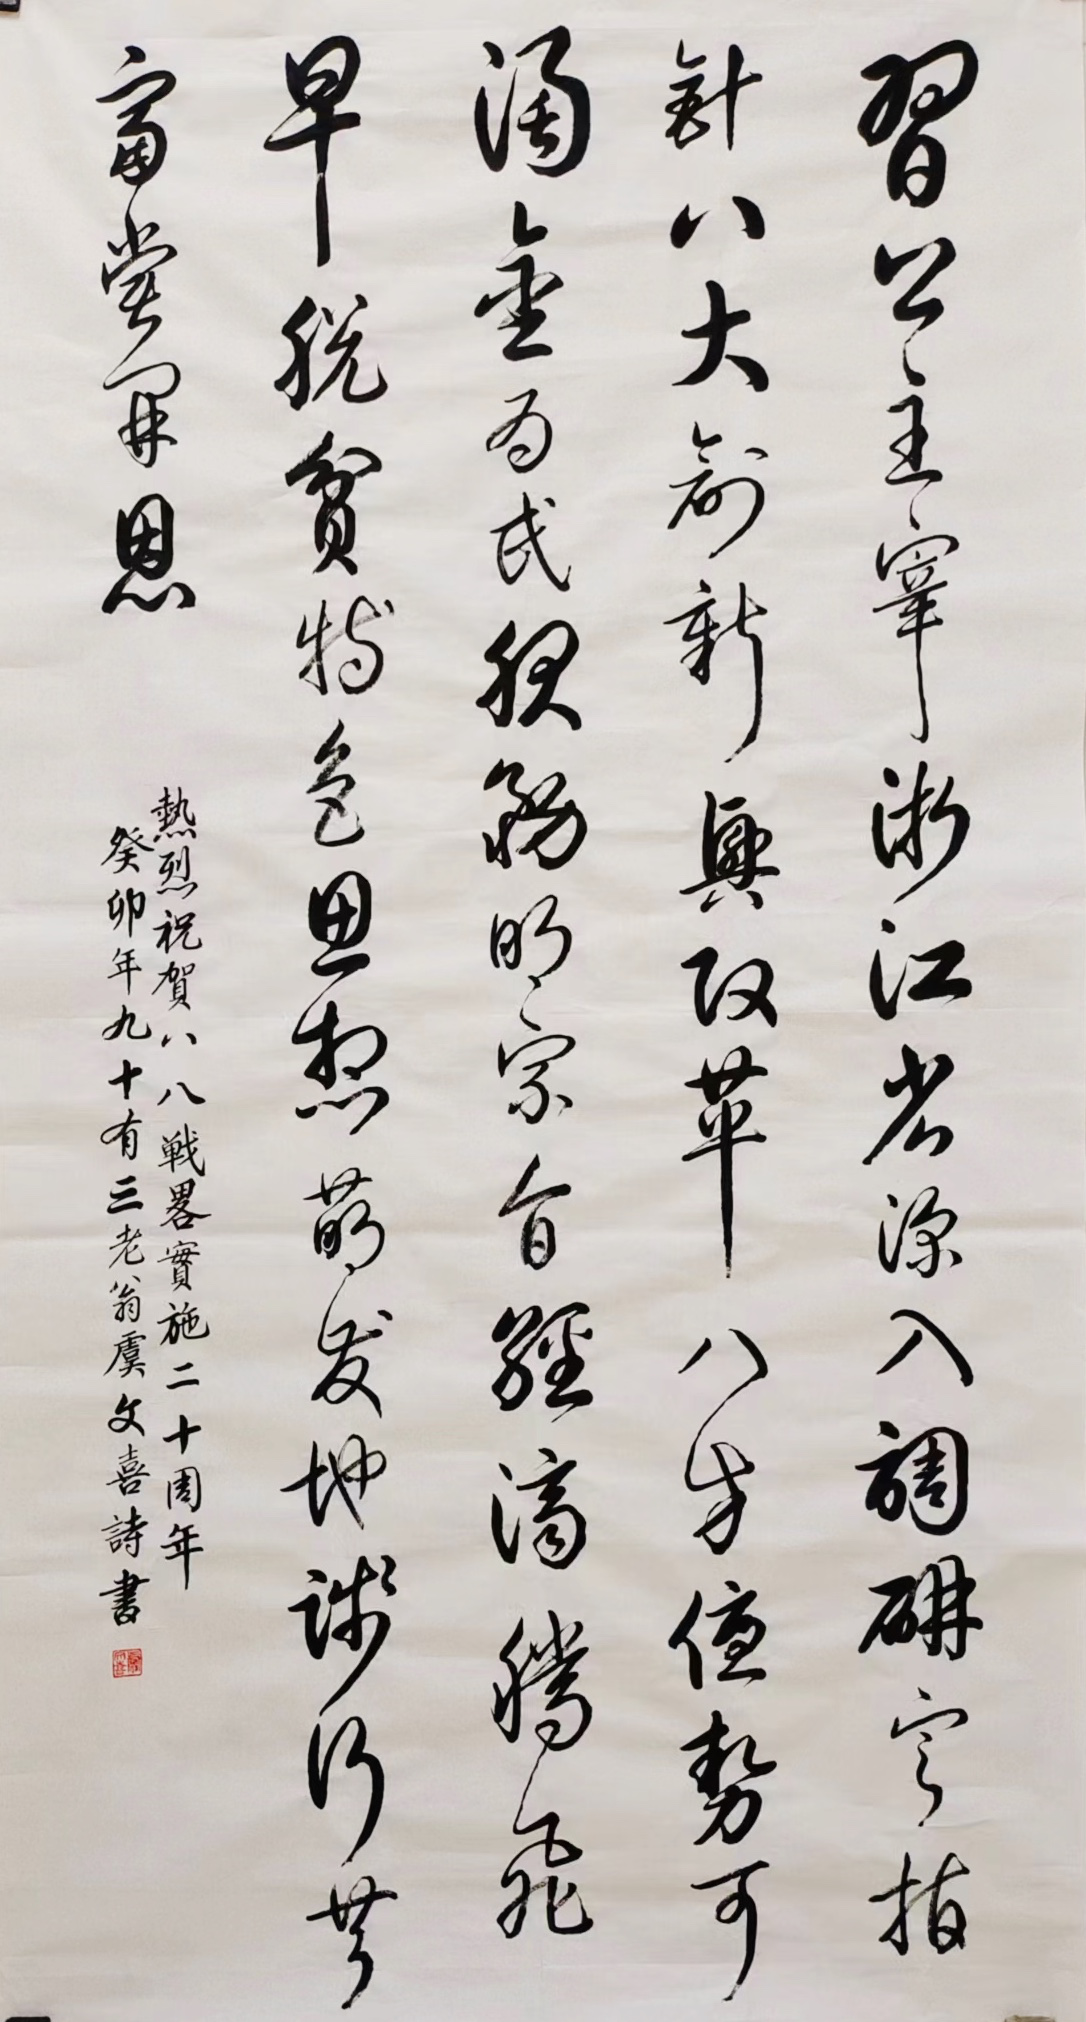 習公主宰浙江省深入調研定指
針八大創新興改革八方優勢可
濁金為民服務明宗旨經濟騰飛
早脫貧特色思想萌發地踐行共
富榮軍恩
熱烈祝賀八八戰畧實施二十周年
癸卯年九十有三老翁虞文喜詩書